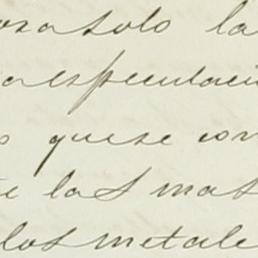 osa solo la
a especulaci
s que se con
te las mas
los metale